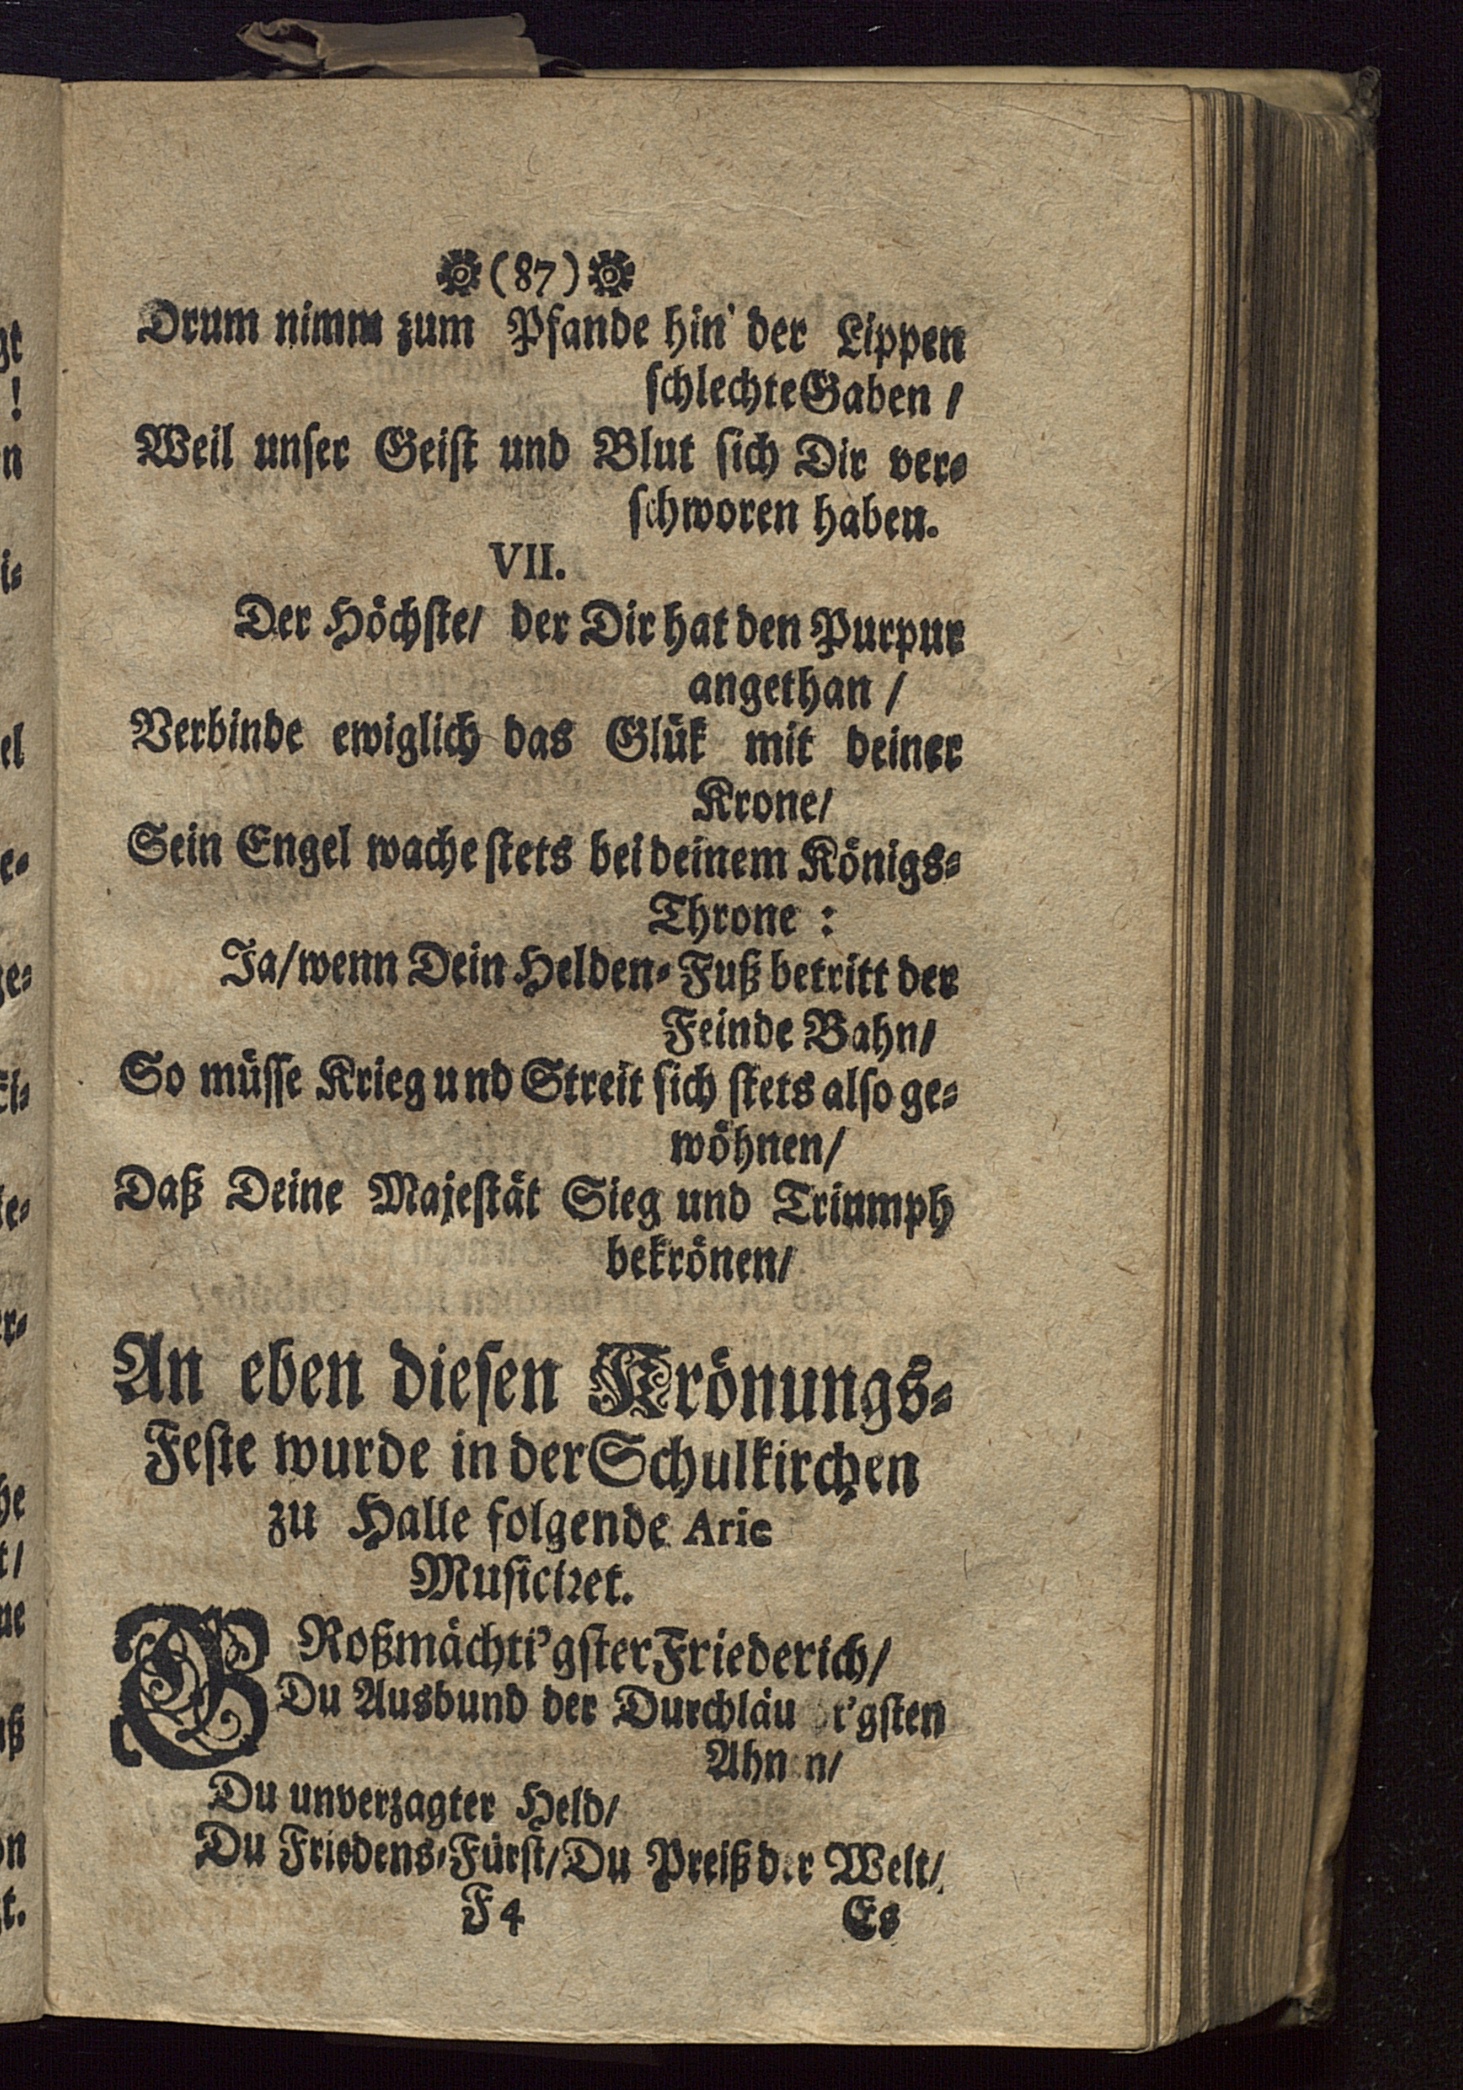 (87)
Drum nimm zum Pfande hin' der Lippen
schlechte Gaben /
Weil unser Geist und Blut sich Dir ver-
schworen haben.
VII.
Der Höchste/ der Dir hat den Purpur
angethan /
Verbinde ewiglich das Glük mit deiner
Krone/
Sein Engel wache stets bei deinem Königs-
Throne :
Ja/ wenn Dein Helden-Fuß betritt der
Feinde Bahn/
So müsse Krieg und Streit sich stets also ge-
wöhnen/
Daß Deine Majestät Sieg und Triumph
bekrönen/
An eben diesen Krönungs-
Feste wurde in der Schulkirchen
zu Halle folgende Arie
Musiciret.
GRoßmächti'gster Friederich/
Du Ausbund der
Du unverzagter Held/
Du Friedens-Fürst/ Du Preiß der Welt/
F 4 Es